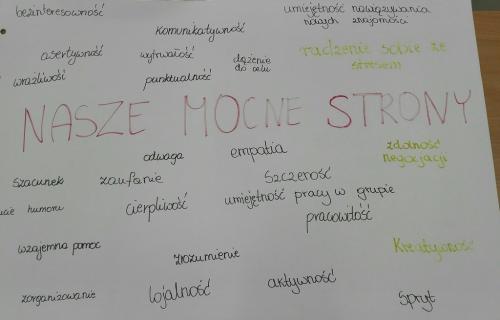 bezinteresowność
umiejętność nawiązywania
nowych znajomości
komunikatywność
asertywność
wytrwałość
dążenie
do celu
radzenie sobie ze
stresem
wrażliwość
punktualność
NASZE MOCNE STRONY
odwaga
empatia
zdolność
negocjacji
szacunek
zaufanie
szczerość
umiejętność pracy w grupie
humoru
cierpliwość
pracowitość
wzajemna pomoc
zrozumienie
Kreatywność
zorganizowanie
lojalność
aktywność
Spryt